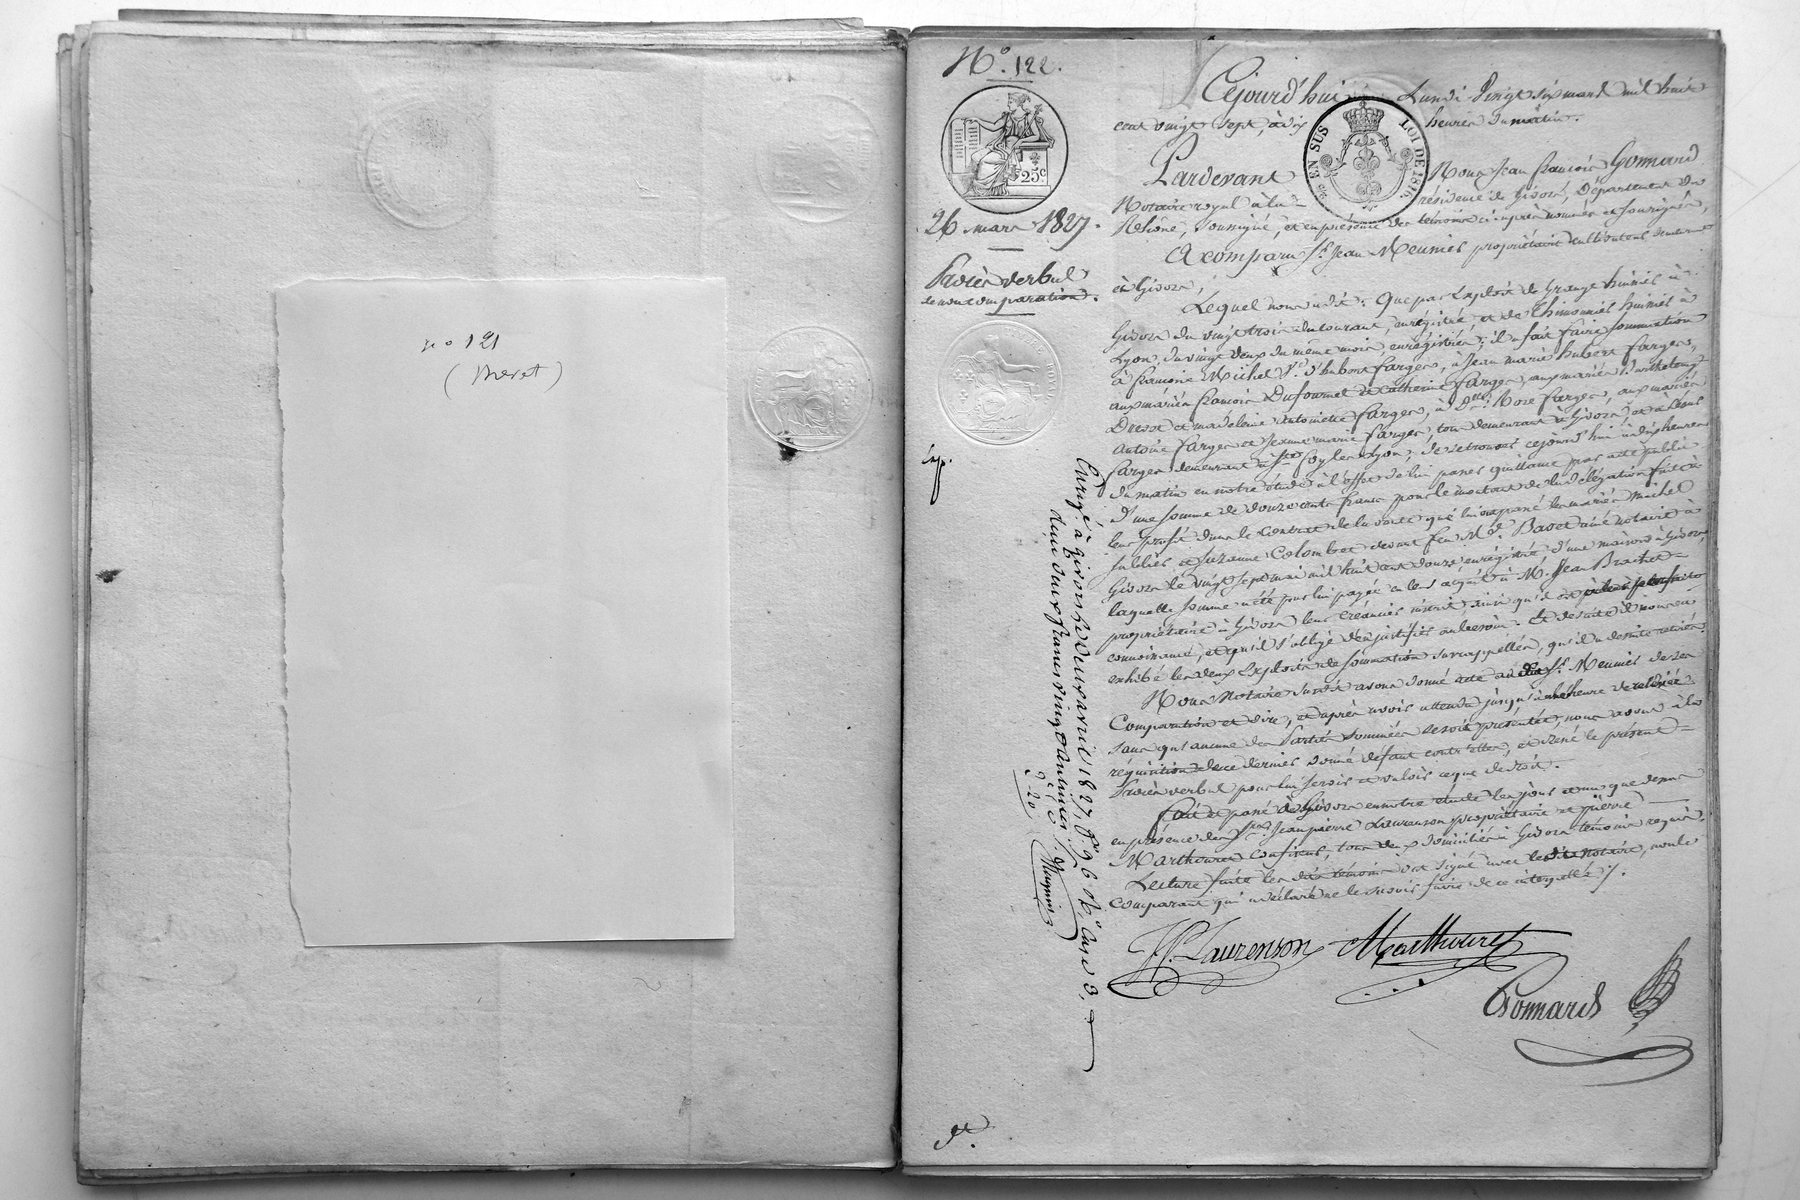 n° 121
(Brevet)
N° 122.
25c
26 mars 1827.
Procès verbal
de non comparation.
Exp.
EN SUS
LOI DE 1816
Cejourd'hui Lundi vingt six mars mil huit
cent vingt sept, à dix heures du matin.
Pardevant Nous Jean françois Gonnard
Notaire royal à la résidence de Givors, Département du
Rhône, soussigné, et en présence des témoins ci après nommés et soussignés,
A comparu Sr. Jean Meunier propriétaire cultivateur demeurant
à Givors,
Lequel nous a dit: Que par Exploit de Grange huissier à
Givors du vingt trois du courant, enregistré et de Thimonnier huissier à
Lyon, du vingt deux du même mois, enregistré; il a fait faire sommation
à françoise Michel Ve. d'hubert farger, à Jean marie hubert farger,
aux mariés françois Dufournel et Catherine farger, aux mariés Barthelemy
et madeleine Antoinette farger, à Dlle. Rose farger, aux mariés
Antoine farger et Jeanne marie farger, tous demeurant à Givors et à
farger demeurant à Ste. foy les Lyon; de se trouver cejourd'hui à dix heures
du matin en notre étude à l'effet de lui passer quittance par acte public
d'une somme de douze cents francs pour le montant de la délégation fait à
leur profit dans le Contrat de la vente que lui ont passé les mariés michel
et Suzanne Colombet devant feu Me. Bavet aîné notaire à
Givors le vingt sept mai mil huit cent douze enregistré, d'une maison à Givors
laquelle somme a été par lui payée en leur acquit à M. Jean Brachet
propriétaire à Givors leur créancier inscrit ainsi qu'il est
connoissance, et qu'il s'oblige d'en justifier au besoin. Et de suite il nous a
exhibé les deux Exploits de sommation surrappellés, qu'il a de suite retirés.
Nous Notaire susdit avons donné acte audit Sr. Meunier de ses
Comparution et dire, et après avoir attendu jusqu'à heure de relevée
sans qu'aucune des Parties sommées se soit présentée, nous avons à la
réquisition de ce dernier donné défaut contr'elles, et dressé le présent
Procès verbal pour lui servir et valoir ce que de droit.
fait et passé à Givors en notre étude les jour et an que dessus
en présence de Srs. Jean pierre Laurenson propriétaire et pierre
Marthouret confiseur, tous deux domiciliés à Givors témoins requis.
Lecture faite les dits témoins ont signé avec le dit Notaire, non le
comparant qui a déclaré ne le savoir faire de ce interpellé.
Enregé. à givors le deux avril 1827, fo. 96 Ro. Case 3,
deux francs vingt centimes.
2
2-20
JP. Laurenson
Marthouret
Gonnard